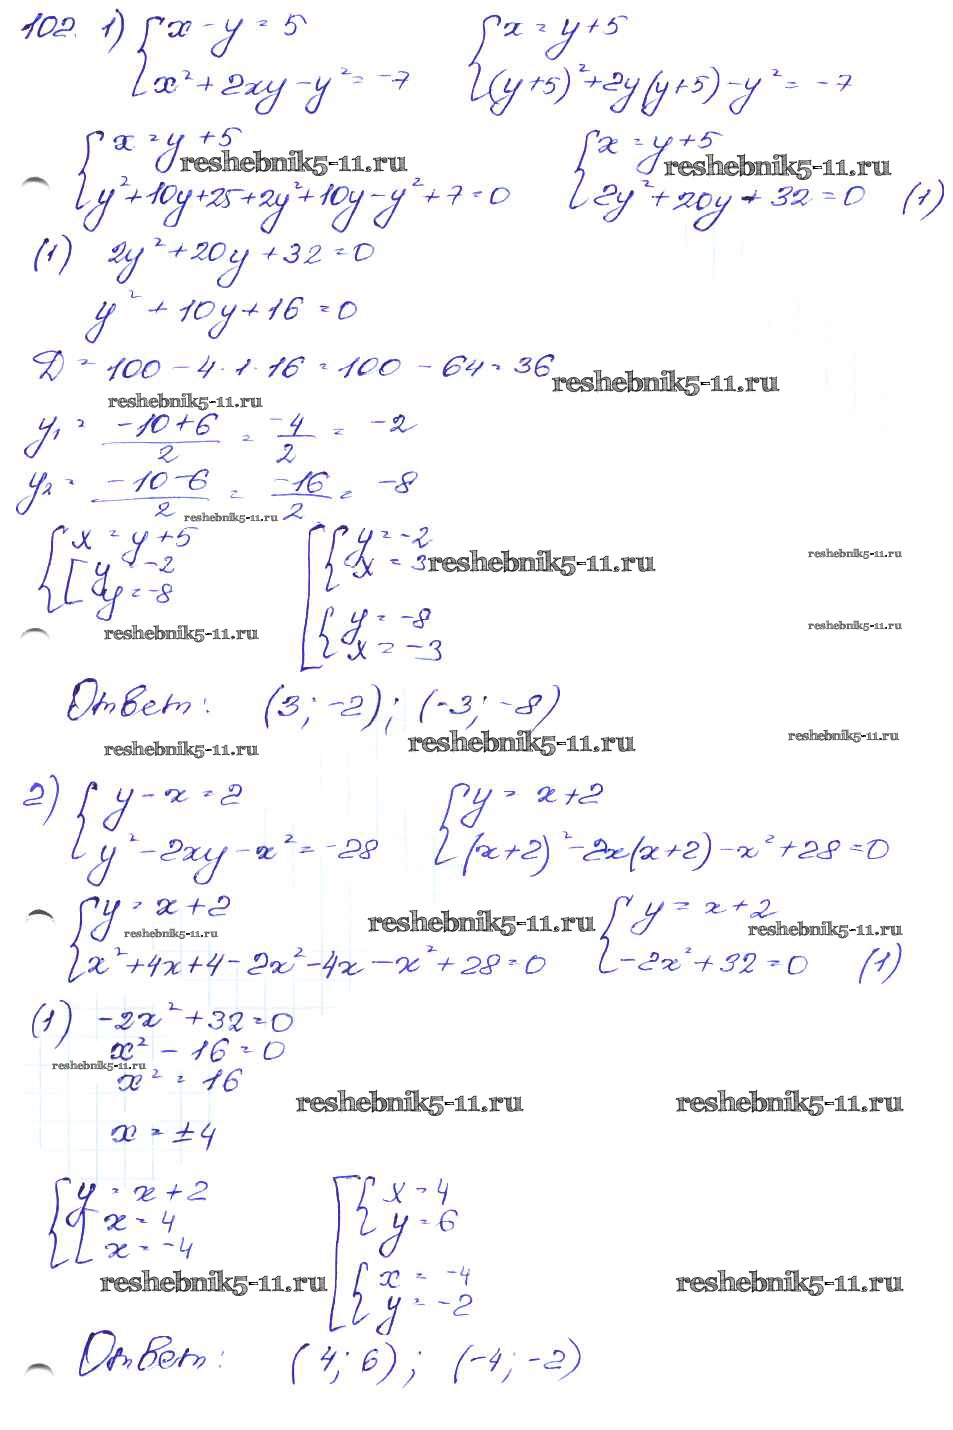 102. 1) { x - y = 5 { x = y + 5
x² + 2xy - y² = -7 (y+5)² + 2y(y+5) - y² = -7
{ x = y + 5 { x = y + 5
reshebnik5-11.ru reshebnik5-11.ru
y² + 10y + 25 + 2y² + 10y - y² + 7 = 0 2y² + 20y + 32 = 0 (1)
(1) 2y² + 20y + 32 = 0
y² + 10y + 16 = 0
D = 100 - 4·1·16 = 100 - 64 = 36
reshebnik5-11.ru
reshebnik5-11.ru
y₁ = (-10+6)/2 = -4/2 = -2
y₂ = (-10-6)/2 = -16/2 = -8
reshebnik5-11.ru
{ x = y + 5 [ { y = -2
[ y = -2 x = 3 reshebnik5-11.ru reshebnik5-11.ru
y = -8 { y = -8
reshebnik5-11.ru x = -3 reshebnik5-11.ru
Ответ: (3; -2); (-3; -8)
reshebnik5-11.ru reshebnik5-11.ru reshebnik5-11.ru
2) { y - x = 2 { y = x + 2
y² - 2xy - x² = -28 (x+2)² - 2x(x+2) - x² + 28 = 0
{ y = x + 2 { y = x + 2
reshebnik5-11.ru reshebnik5-11.ru reshebnik5-11.ru
x² + 4x + 4 - 2x² - 4x - x² + 28 = 0 -2x² + 32 = 0 (1)
(1) -2x² + 32 = 0
x² - 16 = 0
reshebnik5-11.ru
x² = 16
reshebnik5-11.ru reshebnik5-11.ru
x = ±4
{ y = x + 2 [ { x = 4
[ x = 4 y = 6
x = -4 { x = -4
reshebnik5-11.ru reshebnik5-11.ru
y = -2
Ответ: (4; 6); (-4; -2)